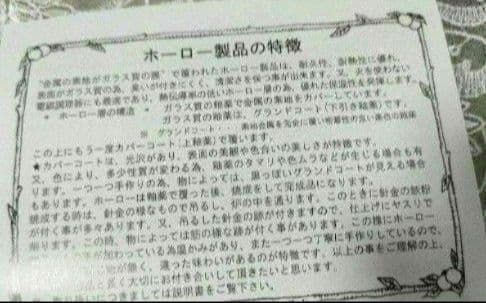 ホーロー製品の特徴
"金属の素地がガラス質の面"で覆われたホーロー製品は、耐久性、耐熱性に優れ、
ガラス質の為、臭いが付きにくく、清潔さを保つ事が出来ます。又、火を使わない
電磁調理器にも最適であり、熱伝導率の低いホーロー層の為、優れた保温性を発揮します。
* ホーロー層の構造 * ガラス質の釉薬で金属の素地をカバーしています。
ガラス質の釉薬は、グランドコート(下引き釉薬)です。
※ グランドコート・・ 素地金属を完全に覆い密着性の良い黒色の釉薬
この上にもう一度カバーコート(上釉薬)で覆います。
★カバーコートは、光沢があり、表面の美観や色合いの美しさが特徴です。
又、色により、多少性質が変わる為、釉薬のタマリや色ムラなどが生じる場合も有
ります。一つ一つ手作りの為、物によっては、黒っぽいグランドコートが見える場合
もあります。ホーローは釉薬で覆った後、焼成をして完成品になります。
焼成する時は、針金の様なもので吊るし、炉の中を通ります。このときに針金の鉄粉
が付く事が多々あります。又、吊るした針金の跡が付きますので、仕上げにヤスリで
削ります。この時、物によっては筋の様な跡が付く事が有ります。この様にホーロー
が加わっている為温かみがあり、また一つ一つ丁寧に手作りしているので、
が無く、違った味わいがあるのが特徴です。以上の事をご理解の上、
長く大切にお付き合いして頂きたいと思います。
きましては説明書をご覧下さい。